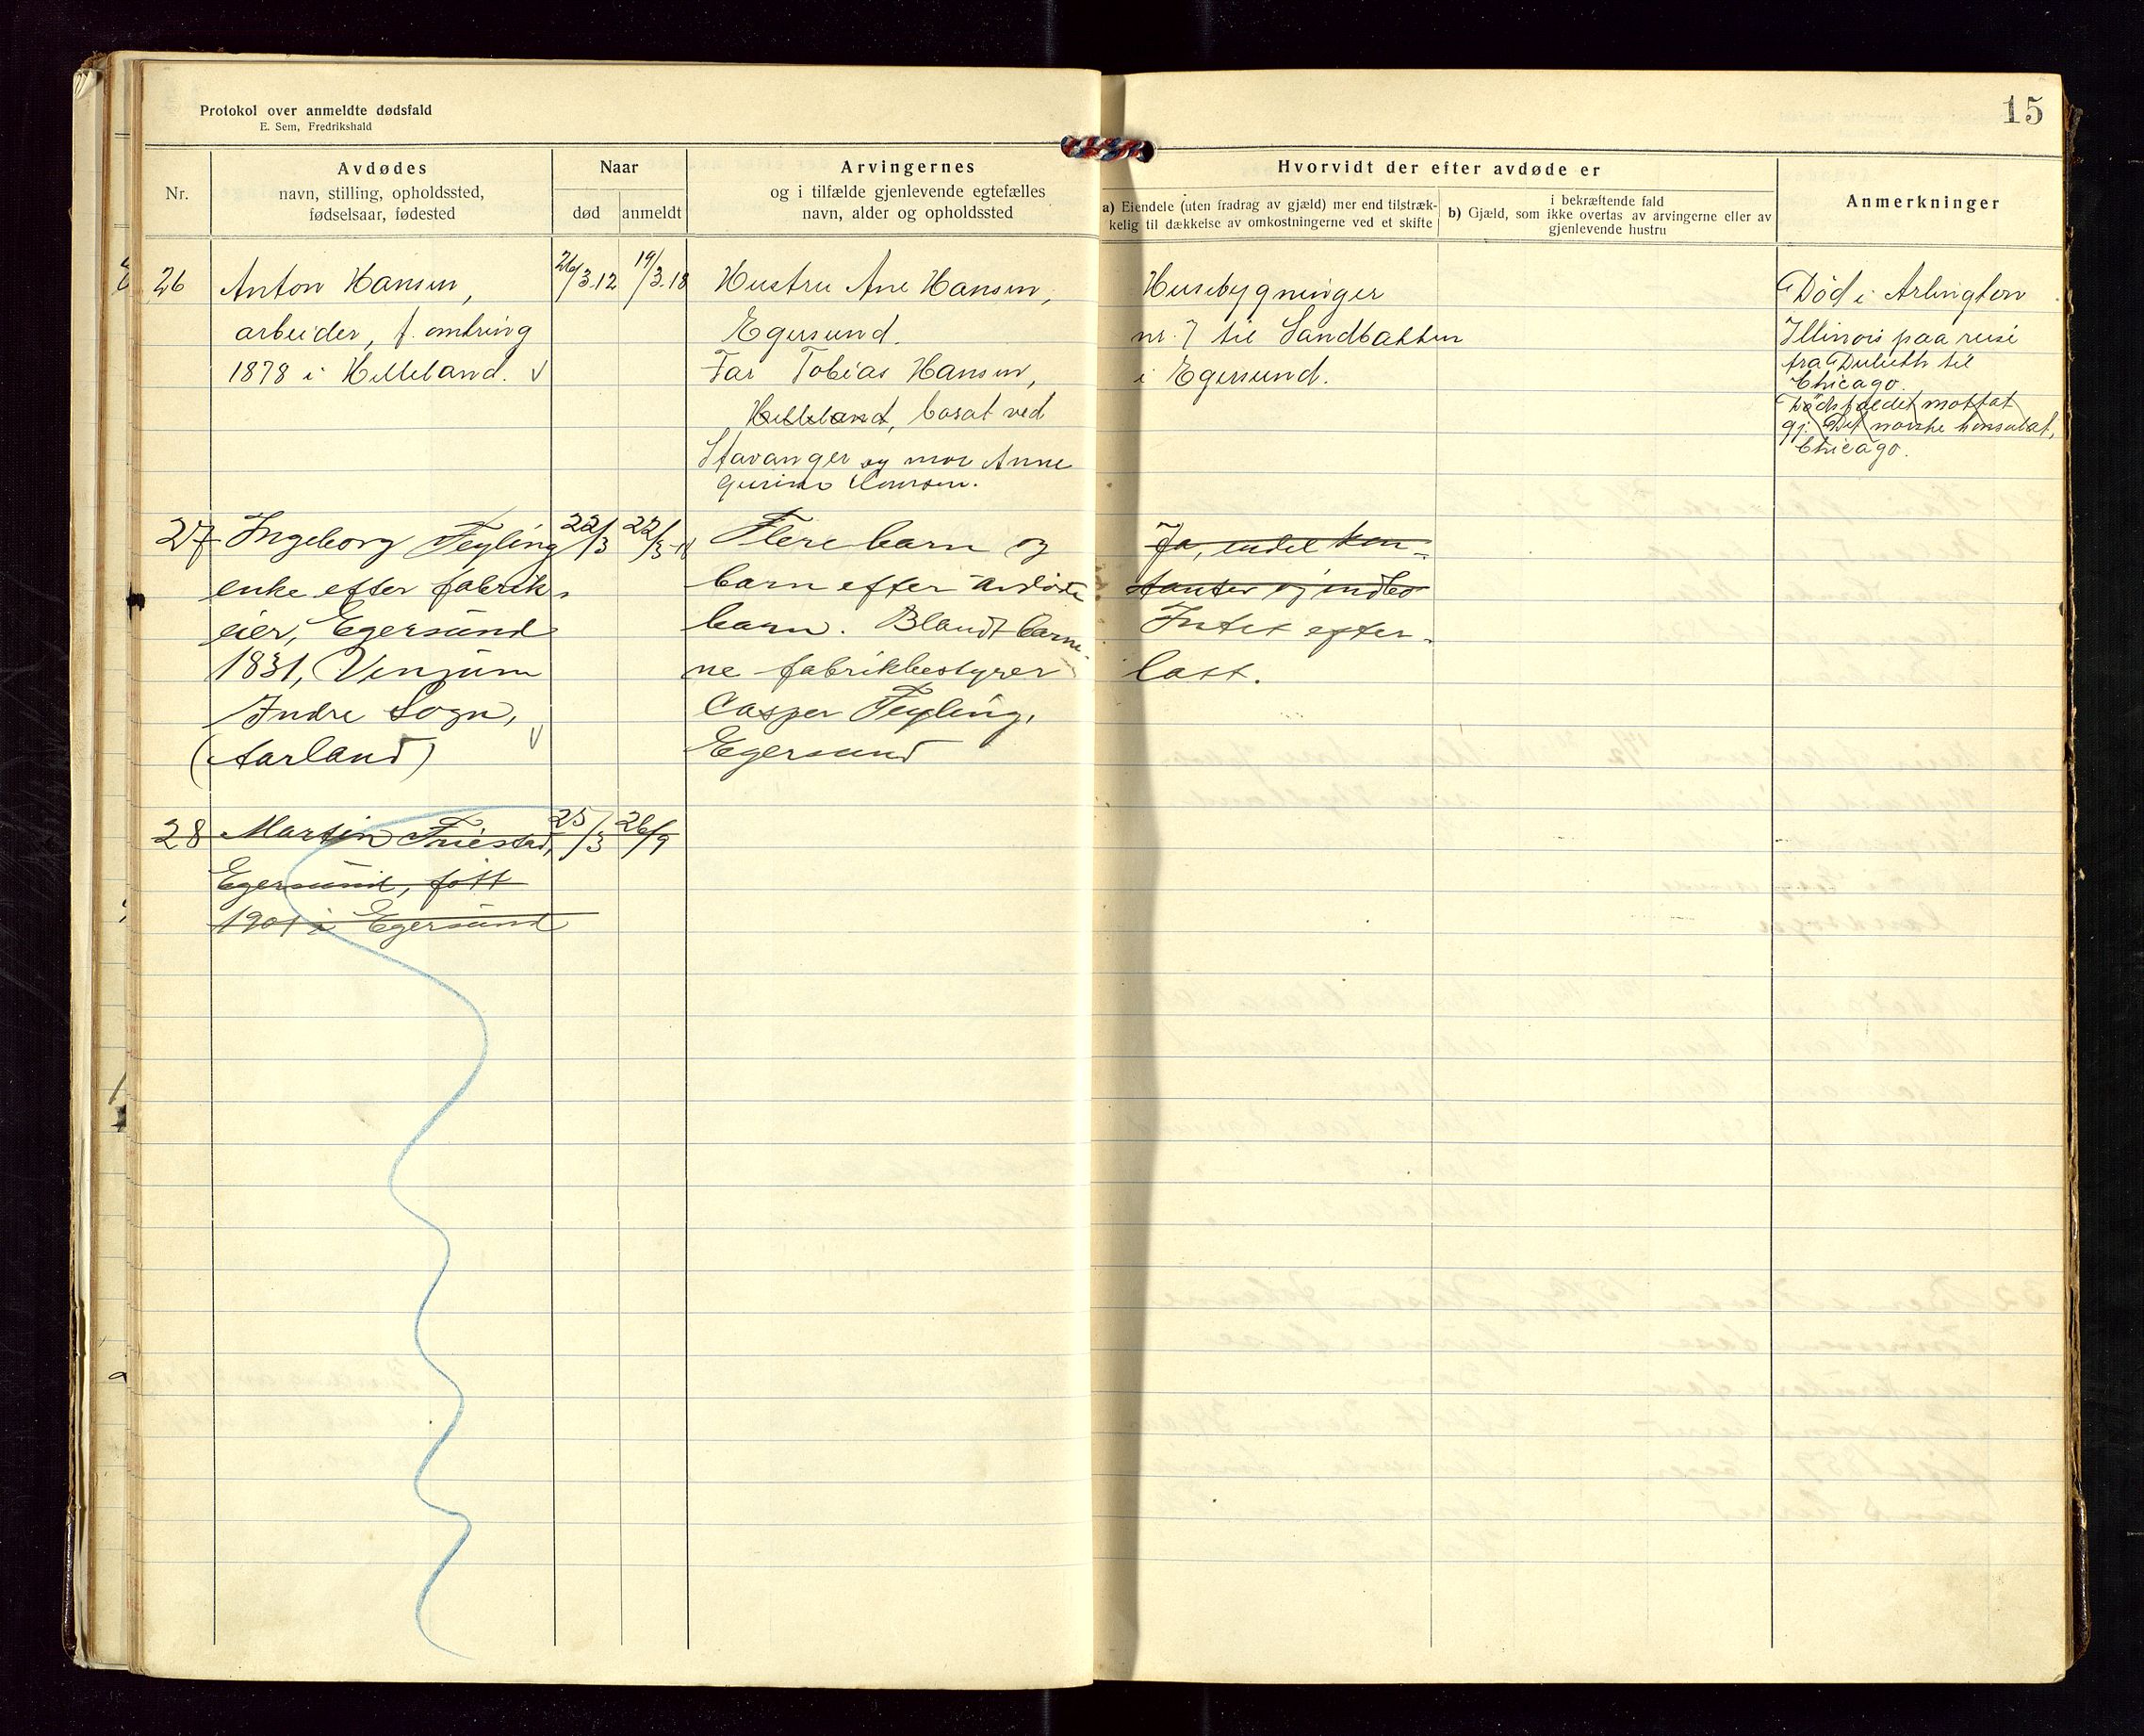 Protokol over anmeldte dødsfald
E. Sem, Fredrikshald
15
Nr.
Avdødes
navn, stilling, opholdssted,
fødselsaar, fødested
Naar
død
anmeldt
Arvingernes
og i tilfælde gjenlevende egtefælles
navn, alder og opholdssted
Hvorvidt der efter avdøde er
a) Eiendele (uten fradrag av gjæld) mer end tilstræk-
kelig til dækkelse av omkostningerne ved et skifte
i bekræftende fald
b) Gjæld, som ikke overtas av arvingerne eller av
gjenlevende hustru
Anmerkninger
26
Anton Hansen,
arbeider, f. omkring
1878 i Helleland. √
26/3.12
19/3.18
Hustru Ane Hansen,
Egersund.
Far Tobias Hansen,
Helleland, bosat ved
Stavanger og mor Anne
Hansen.
Husebygninger
nr. 7 til Sandbakken
i Egersund.
Død i Arlington
Illinois paa reise
fra Duluth til
Chicago.
Dødsfaldet mottat
gj. Det norske konsulat,
Chicago.
27
Ingeborg Feyling
enke efter fabrik-
eier, Egersund
1831, Vinjum
Indre Sogn,
(Aarland) √
22/3
22/3-18
Flere barn og
barn efter avdøde
barn. Blandt barne-
ne fabrikbestyrer
Casper Feyling,
Egersund
Ja, endel kon-
tanter og indbo
Intet efter-
latt.
28
Martin Friestad,
Egersund, født
1901 i Egersund
25/3
26/9